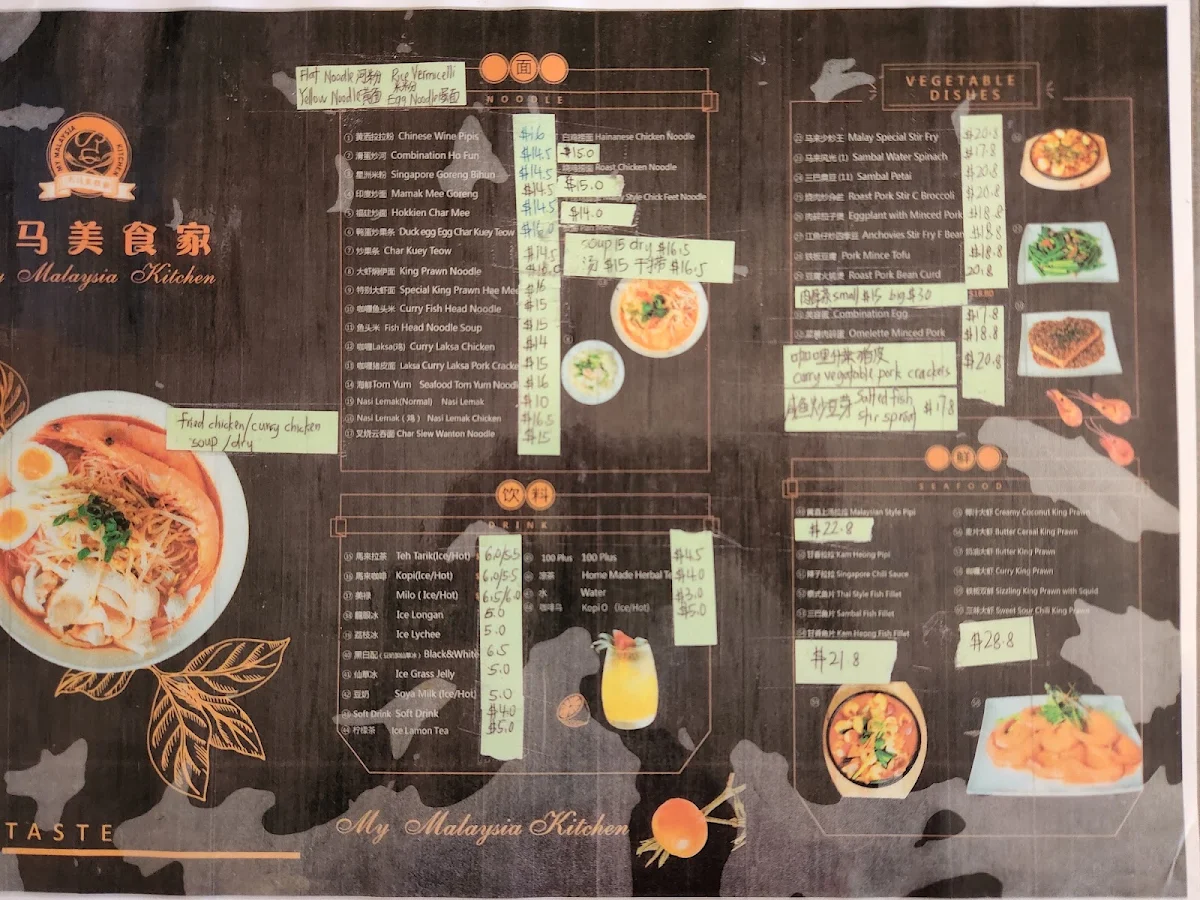 MY MALAYSIA KITCHEN
马美食家
Malaysia Kitchen
fried chicken/curry chicken
soup/dry
TASTE
Flat Noodle 河粉 Rice Vermicelli 米粉
Yellow Noodle 黄面 Egg Noodle
面
NOODLE
① 黄酒拉拉粉 Chinese Wine Pipis $16
② 滑蛋炒河 Combination Ho Fun $14.5
③ 星洲米粉 Singapore Goreng Bihun $14.5
④ 印度炒面 Mamak Mee Goreng $14.5
⑤ 福建炒面 Hokkien Char Mee $14.5
⑥ 鸭蛋炒果条 Duck egg Egg Char Kuey Teow $16.0
⑦ 炒果条 Char Kuey Teow $14.5
⑧ 大虾焖伊面 King Prawn Noodle
⑨ 特别大虾面 Special King Prawn Hae Mee $16
⑩ 咖喱鱼头米 Curry Fish Head Noodle $15
⑪ 鱼头米 Fish Head Noodle Soup $15
⑫ 咖喱Laksa(鸡) Curry Laksa Chicken $14
⑬ 咖喱猪皮面 Laksa Curry Laksa Pork Cracke $15
⑭ 海鲜Tom Yum Seafood Tom Yum Noodl $16
⑮ Nasi Lemak(Normal) Nasi Lemak $10
⑯ Nasi Lemak ( 鸡 ) Nasi Lemak Chicken $16.5
⑰ 叉烧云吞面 Char Siew Wanton Noodle $15
Hainanese Chicken Noodle
$15.0
Roast Chicken Noodle
$15.0
Style Chick Feet Noodle
$14.0
soup 15 dry $16.5
汤 $15 干捞 $16.5
饮料
DRINK
馬來拉茶 Teh Tarik(Ice/Hot) 6.0/5.5
馬来咖啡 Kopi(Ice/Hot) 6.0/5.5
美禄 Milo (Ice/Hot) 6.5/6.0
龍眼冰 Ice Longan 5.0
荔枝冰 Ice Lychee 5.0
黑白配 Black&White 6.5
仙草冰 Ice Grass Jelly 5.0
豆奶 Soya Milk (Ice/Hot) 5.0
Soft Drink Soft Drink $4.0
柠檬茶 Ice Lamon Tea $5.0
100 Plus 100 Plus $4.5
凉茶 Home Made Herbal Te $4.0
水 Water $3.0
咖啡乌 Kopi O (Ice/Hot) $5.0
My Malaysia Kitchen
VEGETABLE
DISHES
马来炒王 Malay Special Stir Fry $20.8
马来风光 (1) Sambal Water Spinach $17.8
三巴臭豆 (1) Sambal Petai $20.8
Roast Pork Stir C Broccoli $20.8
肉碎茄子煲 Eggplant with Minced Pork $18.8
江鱼仔炒四季豆 Anchovies Stir Fry F Bean $18.8
铁板豆腐 Pork Mince Tofu $18.8
豆腐火腩煲 Roast Pork Bean Curd 20.8
肉骨茶 small $15 big $30 $18.80
芙蓉蛋 Combination Egg $17.8
菜脯肉碎蛋 Omelette Minced Pork $18.8
咖哩什菜猪皮 $20.8
curry vegetable pork crackers
咸鱼炒豆芽 Salted fish
stir sprout $17.8
鲜
SEAFOOD
黄酒上汤拉拉 Malaysian Style Pipi
$22.8
甘香拉拉 Kam Heong Pipi
辣子拉拉 Singapore Chili Sauce
泰式鱼片 Thai Style Fish Fillet
三巴鱼片 Sambal Fish Fillet
甘香鱼片 Kam Heong Fish Fillet
$21.8
椰汁大虾 Creamy Coconut King Prawn
麦片大虾 Butter Cereal King Prawn
奶油大虾 Butter King Prawn
咖喱大虾 Curry King Prawn
铁板双鲜 Sizzling King Prawn with Squid
三味大虾 Sweet Sour Chili King Prawn
$28.8